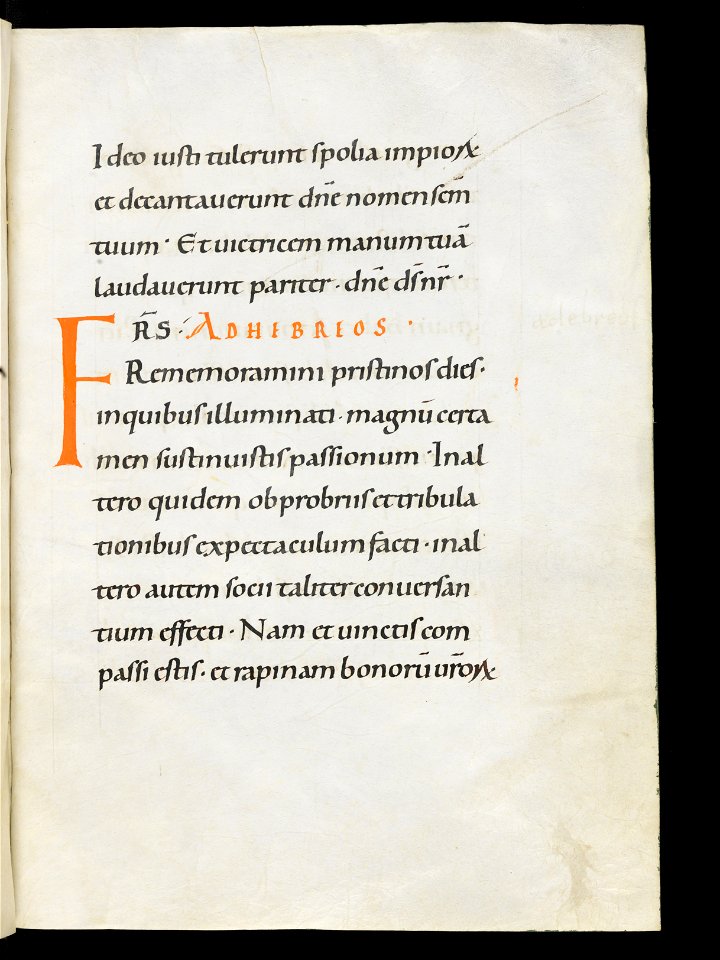 Ideo iusti tulerunt spolia impioꝝ
et decantauerunt dn̄e nomen sc̄m
tuum · Et uictricem manum tuā
laudauerunt pariter · dn̄e ds̄ nr̄ ·
FR̄S · AD HIBRIOS ·
Rememoramini pristinos dies ·
in quibus illuminati · magnū certa
men sustinuistis passionum · In al
tero quidem obprobriis et tribula
tionibus expectaculum facti · in al
tero autem socii taliter conuersan
tium effecti · Nam et uinctis com
passi estis · et rapinam bonorū ur̄oꝝ